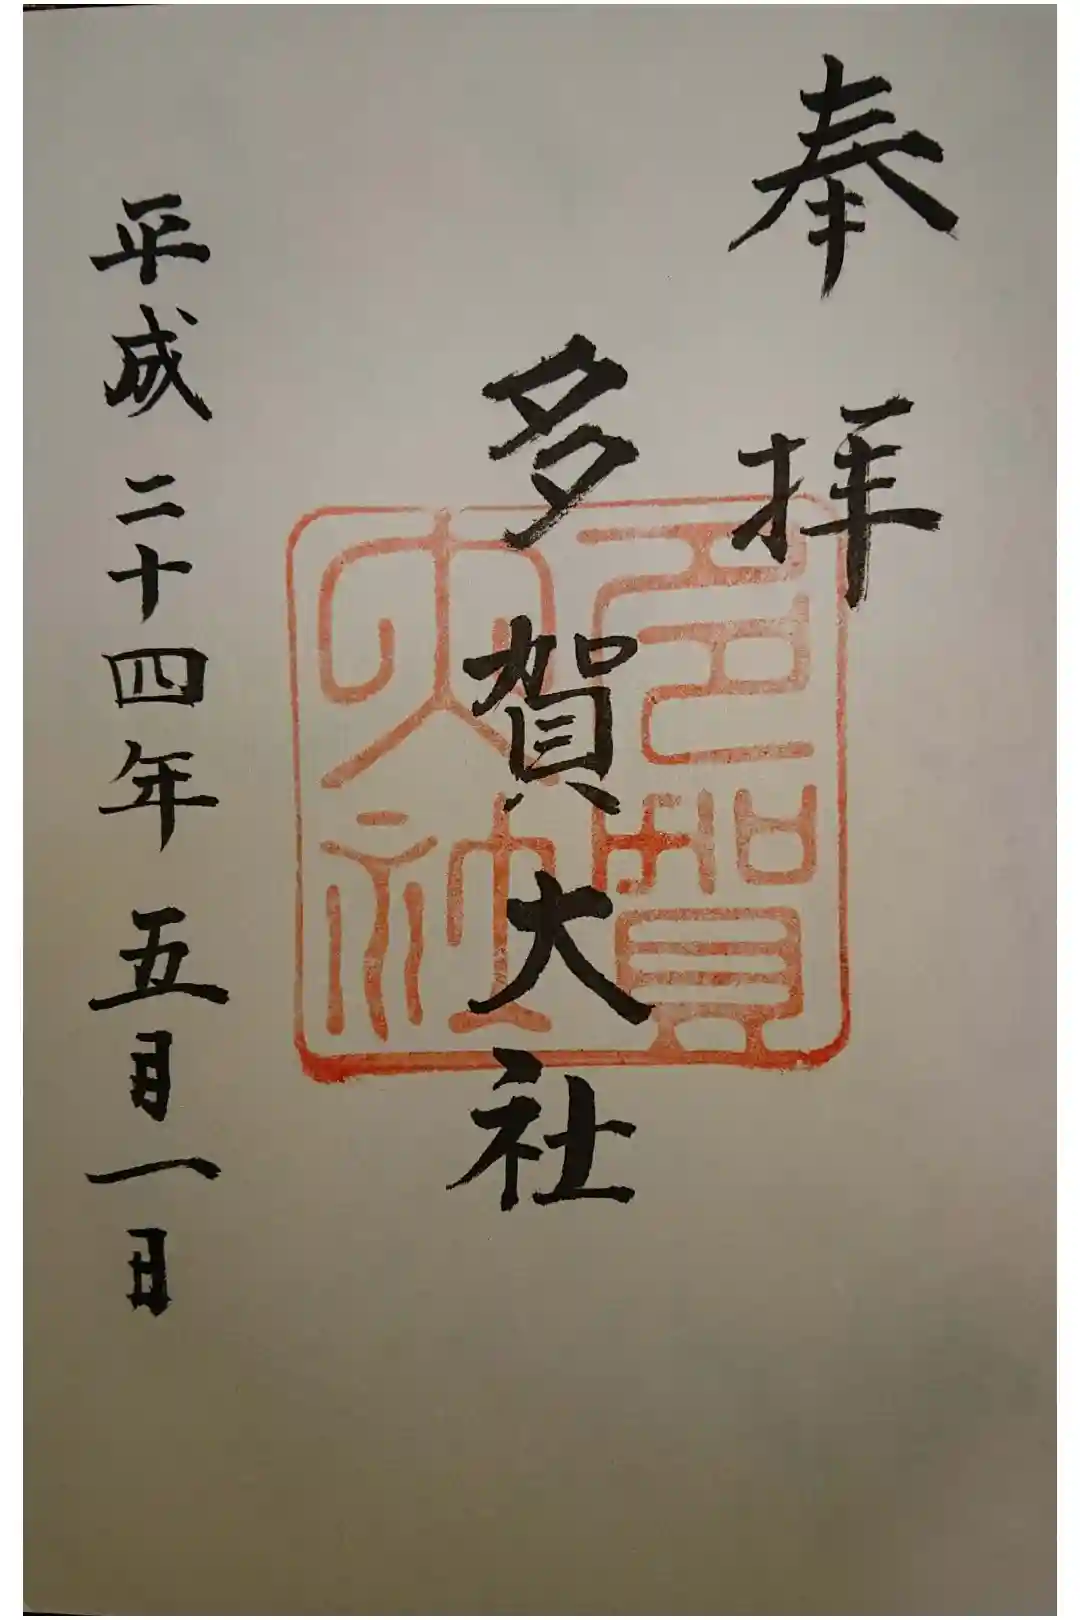 奉拝
多賀大社
多賀大社
平成二十四年五月一日